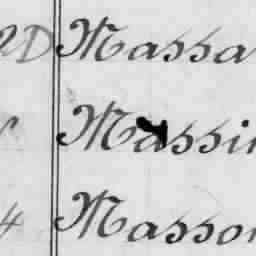 2D Massa
Massi
4 Masson